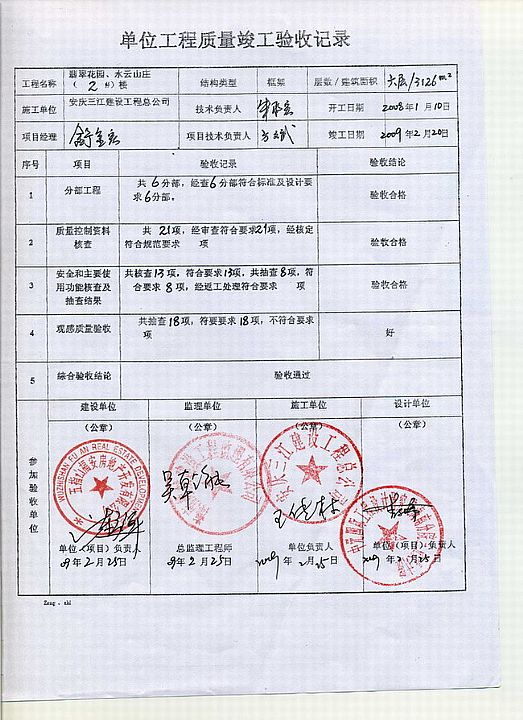 单位工程质量竣工验收记录
工程名称 翡翠花园、水云山庄（2#）楼 结构类型 框架 层数/建筑面积 六层/3126m²
施工单位 安庆三江建设工程总公司 技术负责人 开工日期 2008年1月10日
项目经理 项目技术负责人 竣工日期 2009年2月20日
序号 项目 验收记录 验收结论
1 分部工程 共6分部，经查6分部符合标准及设计要求6分部。 验收合格
2 质量控制资料核查 共21项，经审查符合要求21项，经核定符合规范要求 项 验收合格
3 安全和主要使用功能核查及抽查结果 共核查13项，符合要求13项，共抽查8项，符合要求8项，经返工处理符合要求 项 验收合格
4 观感质量验收 共抽查18项，符要要求18项，不符合要求 项 好
5 综合验收结论 验收通过
参加验收单位
建设单位 监理单位 施工单位 设计单位
（公章） （公章） （公章） （公章）
WUZHISHAN FU AN REAL ESTATE DEVELOPMENT
五指山福安房地产开发有限公司
安庆三江建设工程总公司
单位（项目）负责人 总监理工程师 单位负责人 单位（项目）负责人
09年2月25日 09年2月25日 2009年2月25日 2009年2月25日